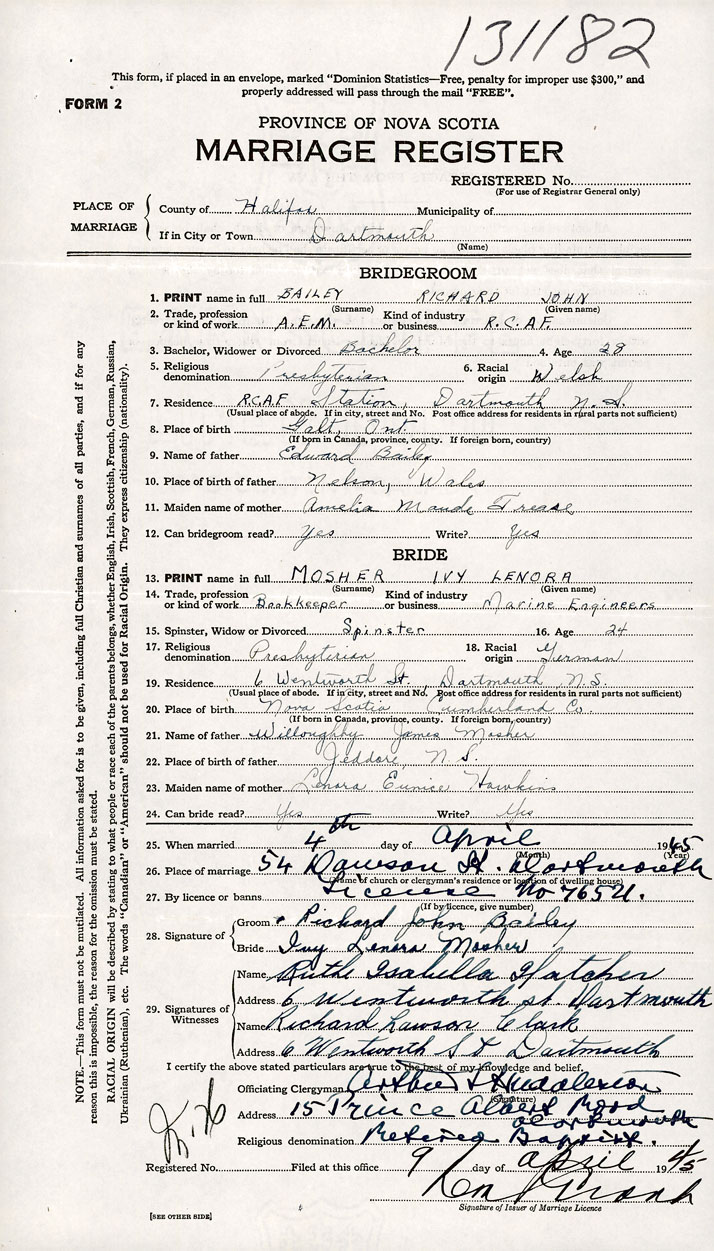 131182
This form, if placed in an envelope, marked "Dominion Statistics—Free, penalty for improper use $300," and
properly addressed will pass through the mail "FREE".
FORM 2
PROVINCE OF NOVA SCOTIA
MARRIAGE REGISTER
REGISTERED No.
(For use of Registrar General only)
PLACE OF MARRIAGE
County of Halifax Municipality of
If in City or Town Dartmouth
(Name)
BRIDEGROOM
1. PRINT name in full BAILEY RICHARD JOHN
(Surname) (Given name)
2. Trade, profession or kind of work A.E.M. Kind of industry or business R.C.A.F.
3. Bachelor, Widower or Divorced Bachelor 4. Age 28
5. Religious denomination Presbyterian 6. Racial origin Welsh
7. Residence R.C.A.F. Station, Dartmouth N.S.
(Usual place of abode. If in city, street and No. Post office address for residents in rural parts not sufficient)
8. Place of birth Galt, Ont.
(If born in Canada, province, county. If foreign born, country)
9. Name of father Edward Bailey
10. Place of birth of father Nelson, Wales
11. Maiden name of mother Amelia Maude Trease
12. Can bridegroom read? Yes Write? Yes
BRIDE
13. PRINT name in full MOSHER IVY LENORA
(Surname) (Given name)
14. Trade, profession or kind of work Bookkeeper Kind of industry or business Marine Engineers
15. Spinster, Widow or Divorced Spinster 16. Age 24
17. Religious denomination Presbyterian 18. Racial origin German
19. Residence 6 Wentworth St., Dartmouth, N.S.
(Usual place of abode. If in city, street and No. Post office address for residents in rural parts not sufficient)
20. Place of birth Nova Scotia Cumberland Co.
(If born in Canada, province, county. If foreign born, country)
21. Name of father Willoughby James Mosher
22. Place of birth of father Jeddore, N.S.
23. Maiden name of mother Lenora Eunice Hawkins
24. Can bride read? Yes Write? Yes
25. When married 4th day of April 1945
(Month) (Year)
26. Place of marriage 54 Dawson St. Dartmouth
(Name of church or clergyman's residence or location of dwelling house)
27. By licence or banns License No 7654.
(If by licence, give number)
28. Signature of
Groom Richard John Bailey
Bride Ivy Lenora Mosher
29. Signatures of Witnesses
Name Ruth Isabella Hatcher
Address 6 Wentworth St Dartmouth
Name Richard Lawson Clark
Address 6 Wentworth St Dartmouth
I certify the above stated particulars are true to the best of my knowledge and belief.
Officiating Clergyman Arthur Huddleston
(Signature)
Address 15 Prince Albert Road Dartmouth
Religious denomination Retired Baptist.
Registered No. Filed at this office 9 day of April 1945
Signature of Issuer of Marriage Licence
[SEE OTHER SIDE]
NOTE.—This form must not be mutilated. All information asked for is to be given, including full Christian and surnames of all parties, and if for any
reason this is impossible, the reason for the omission must be stated.
RACIAL ORIGIN will be described by stating to what people or race each of the parents belongs, whether English, Irish, Scottish, French, German, Russian,
Ukrainian (Ruthenian), etc. The words "Canadian" or "American" should not be used for Racial Origin. They express citizenship (nationality).